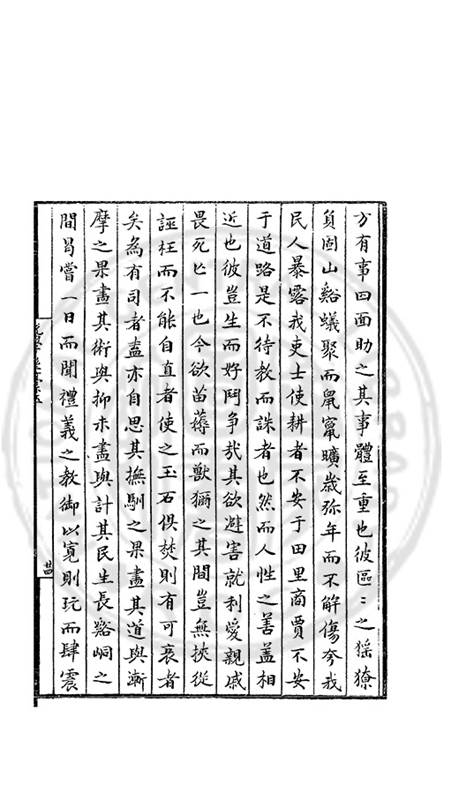 方有事四面助之其事體至重也彼區〻之猺獠
負固山谿蟻聚而鼠竄曠歳弥年而不解傷夸我
民人暴露我吏士使耕者不安于田里商賈不安
于道路是不待教而誅者也然而人性之善蓋相
近也彼豈生而好鬥争哉其欲避害就利愛親戚
畏死亡一也今欲苗薅而獸獮之其間豈無挾從
誣枉而不能自直者使之玉石俱焚則有可哀者
矣為有司者盍亦自思其撫馴之果盡其道與漸
摩之果盡其術與抑未盡與計其民生長谿峒之
間曷嘗一日而聞禮義之教御以寛則玩而肆震